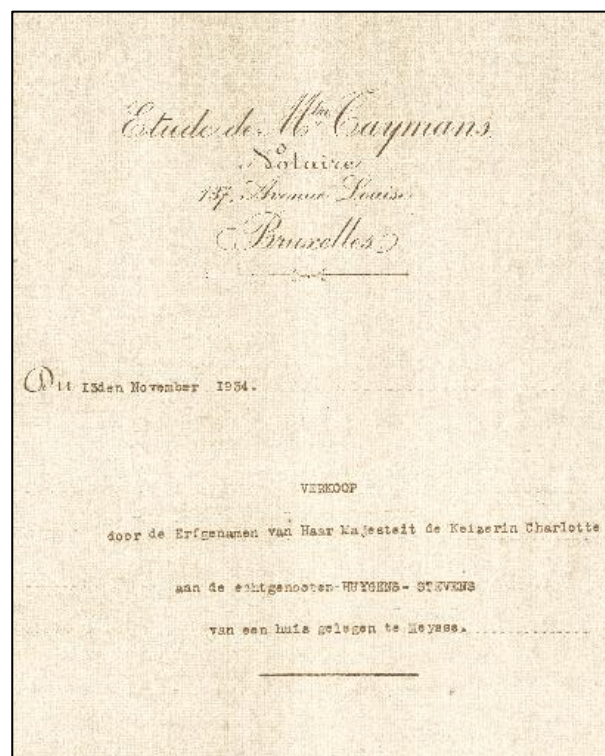 Etude de Mtre Taymans
Notaire
137, Avenue Louise
Bruxelles
Du 13den November 1934.
VERKOOP
door de Erfgenamen van Haar Majesteit de Keizerin Charlotte
aan de echtgenooten HUYGENS- STEVENS
van een huis gelegen te Meysse.